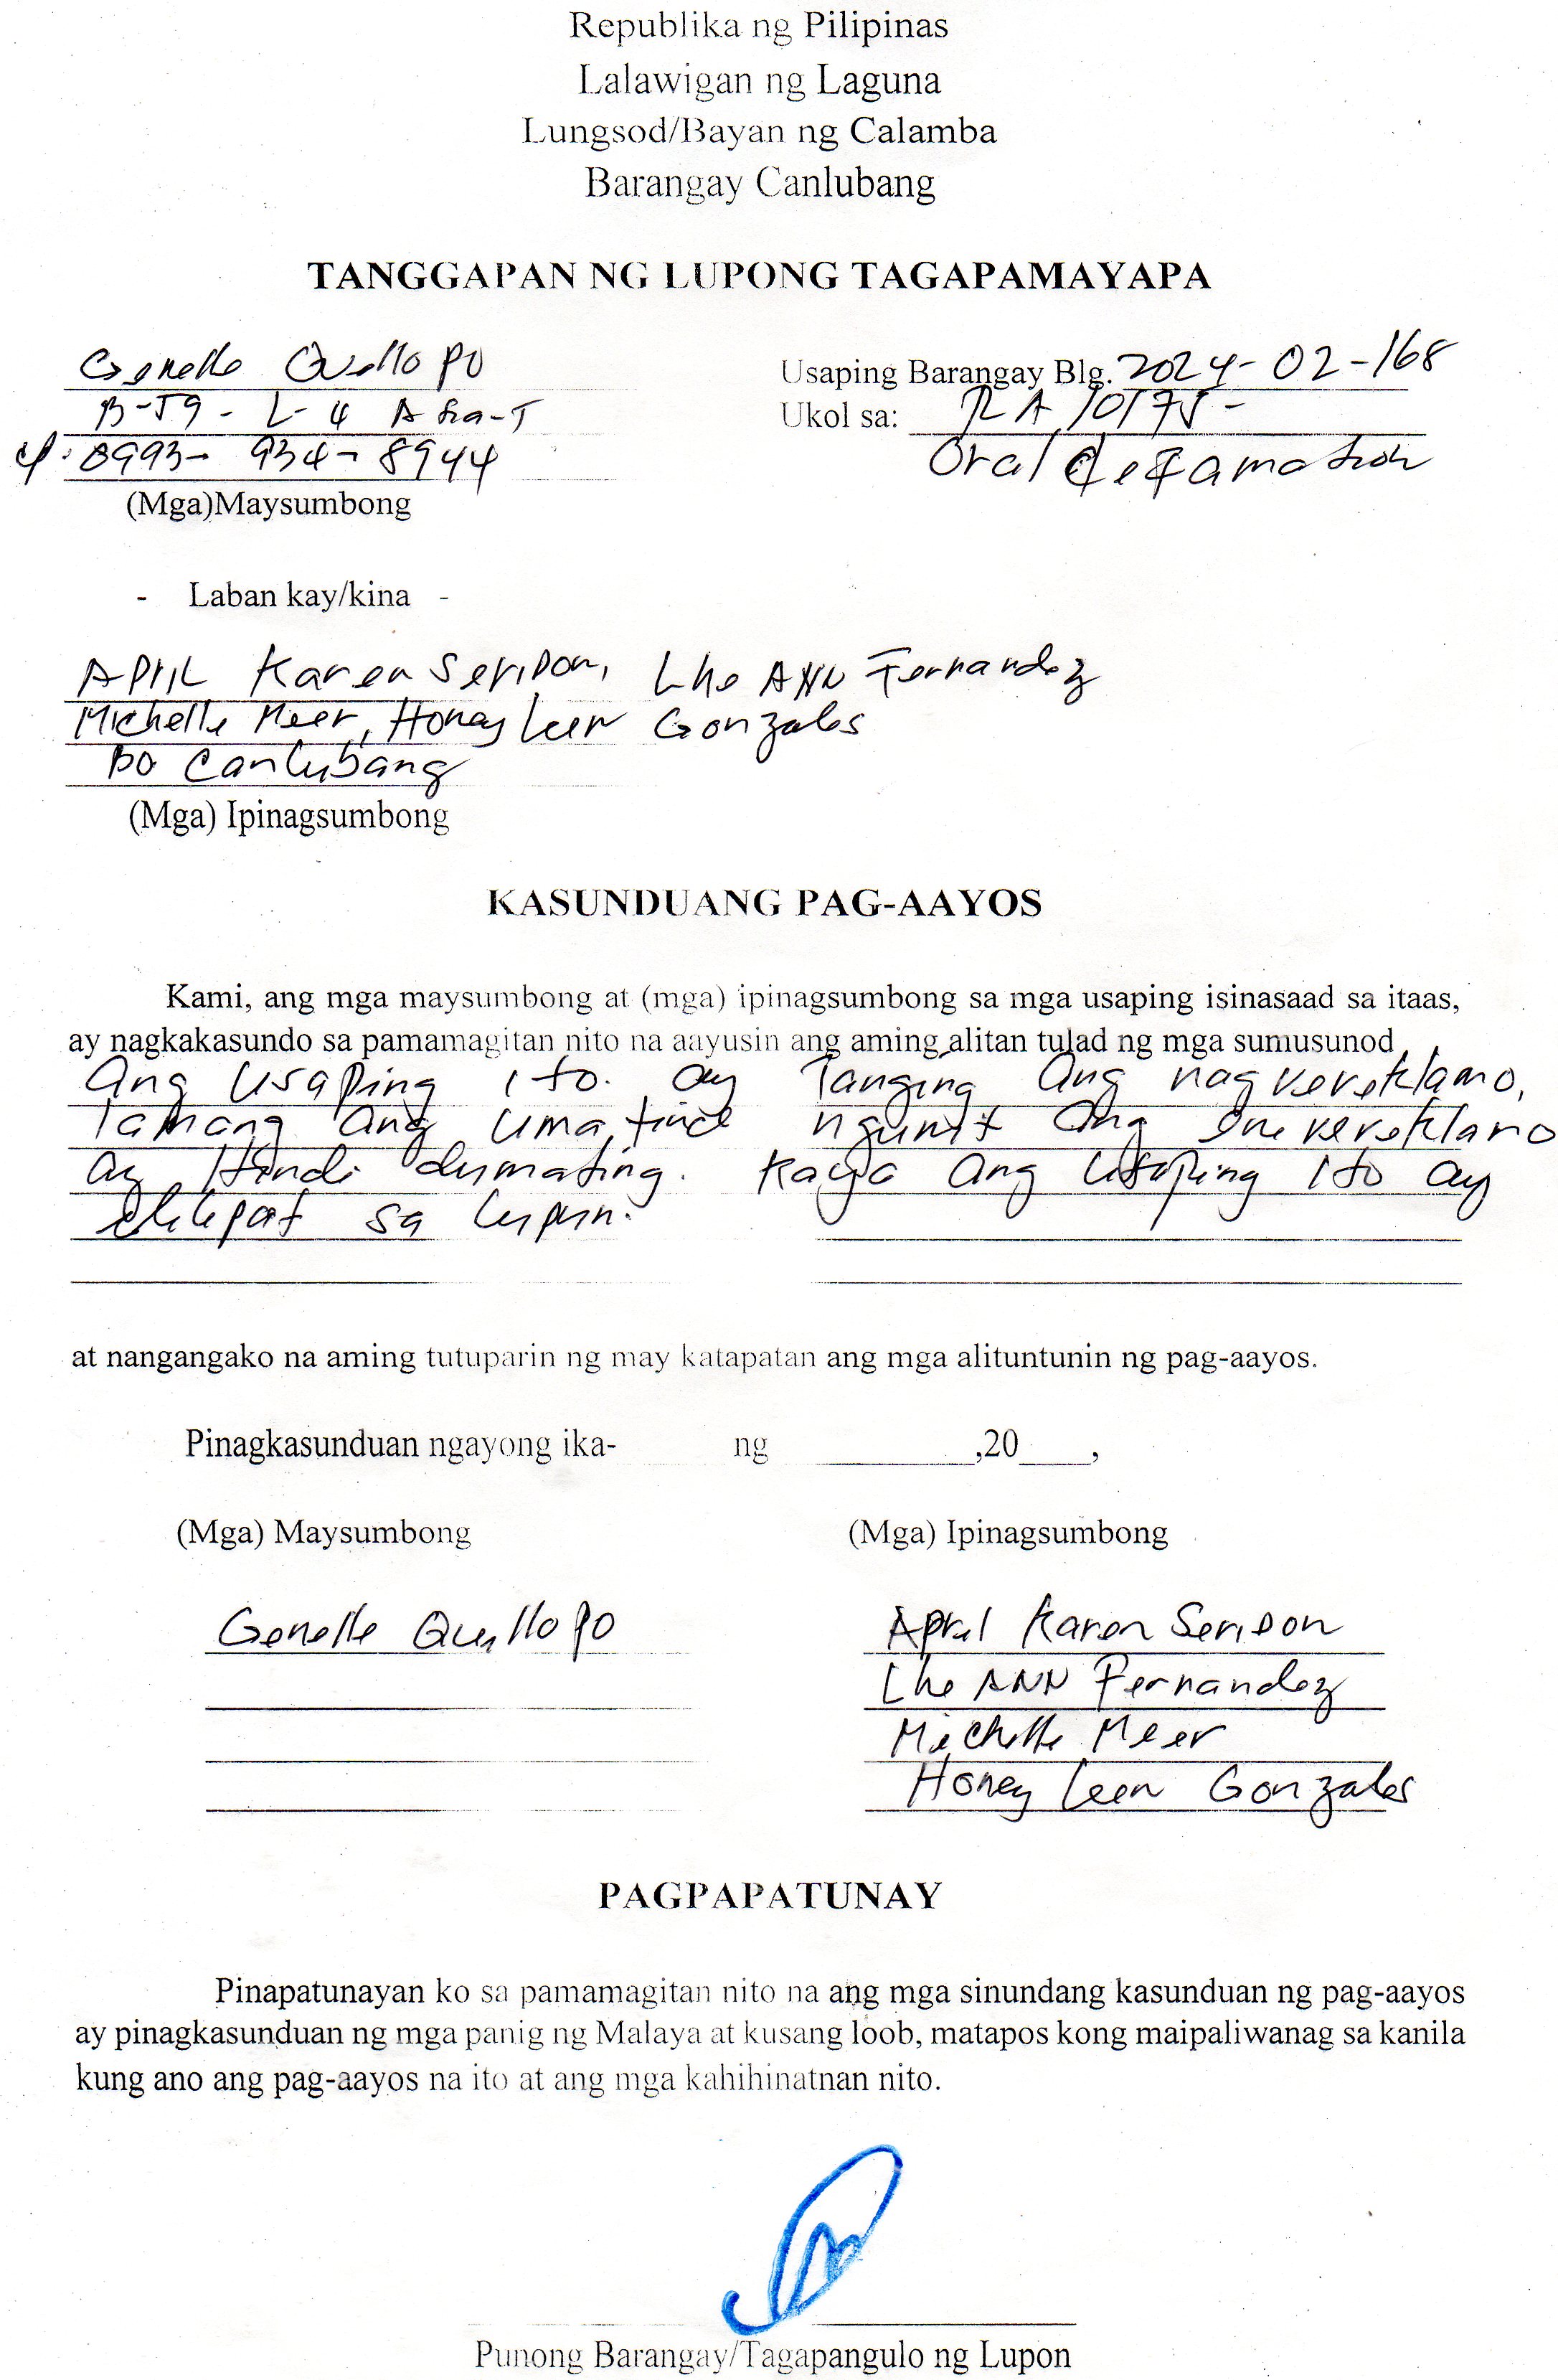 Republika ng Pilipinas
Lalawigan ng Laguna
Lungsod/Bayan ng Calamba
Barangay Canlubang
TANGGAPAN NG LUPONG TAGAPAMAYAPA
Genelle Quillopo
B-59 - L-4 Asia-I
0993- 934- 8944
(Mga)Maysumbong
Usaping Barangay Blg. 2024- 02-168
Ukol sa: RA 10175-
Oral defamation
- Laban kay/kina -
April Karen Seridon, Lhe ANN Fernandez
Michelle Meer, Honey leen Gonzales
BO Canlubang
(Mga) Ipinagsumbong
KASUNDUANG PAG-AAYOS
Kami, ang mga maysumbong at (mga) ipinagsumbong sa mga usaping isinasaad sa itaas,
ay nagkakasundo sa pamamagitan nito na aayusin ang aming alitan tulad ng mga sumusunod
Ang Usaping ito. ay Tanging Ang nagrereklamo,
lamang ang uma,tind ngunit Ang Inerereklamo
ay Hindi dumating. Kaya Ang Usaping Ito ay
sa lupon.
at nangangako na aming tutuparin ng may katapatan ang mga alituntunin ng pag-aayos.
Pinagkasunduan ngayong ika- ng ________,20____,
(Mga) Maysumbong (Mga) Ipinagsumbong
Genelle Quillopo April Karen Seridon
Lhe ANN Fernandez
Michelle Meer
Honey leen Gonzales
PAGPAPATUNAY
Pinapatunayan ko sa pamamagitan nito na ang mga sinundang kasunduan ng pag-aayos
ay pinagkasunduan ng mga panig ng Malaya at kusang loob, matapos kong maipaliwanag sa kanila
kung ano ang pag-aayos na ito at ang mga kahihinatnan nito.
Punong Barangay/Tagapangulo ng Lupon